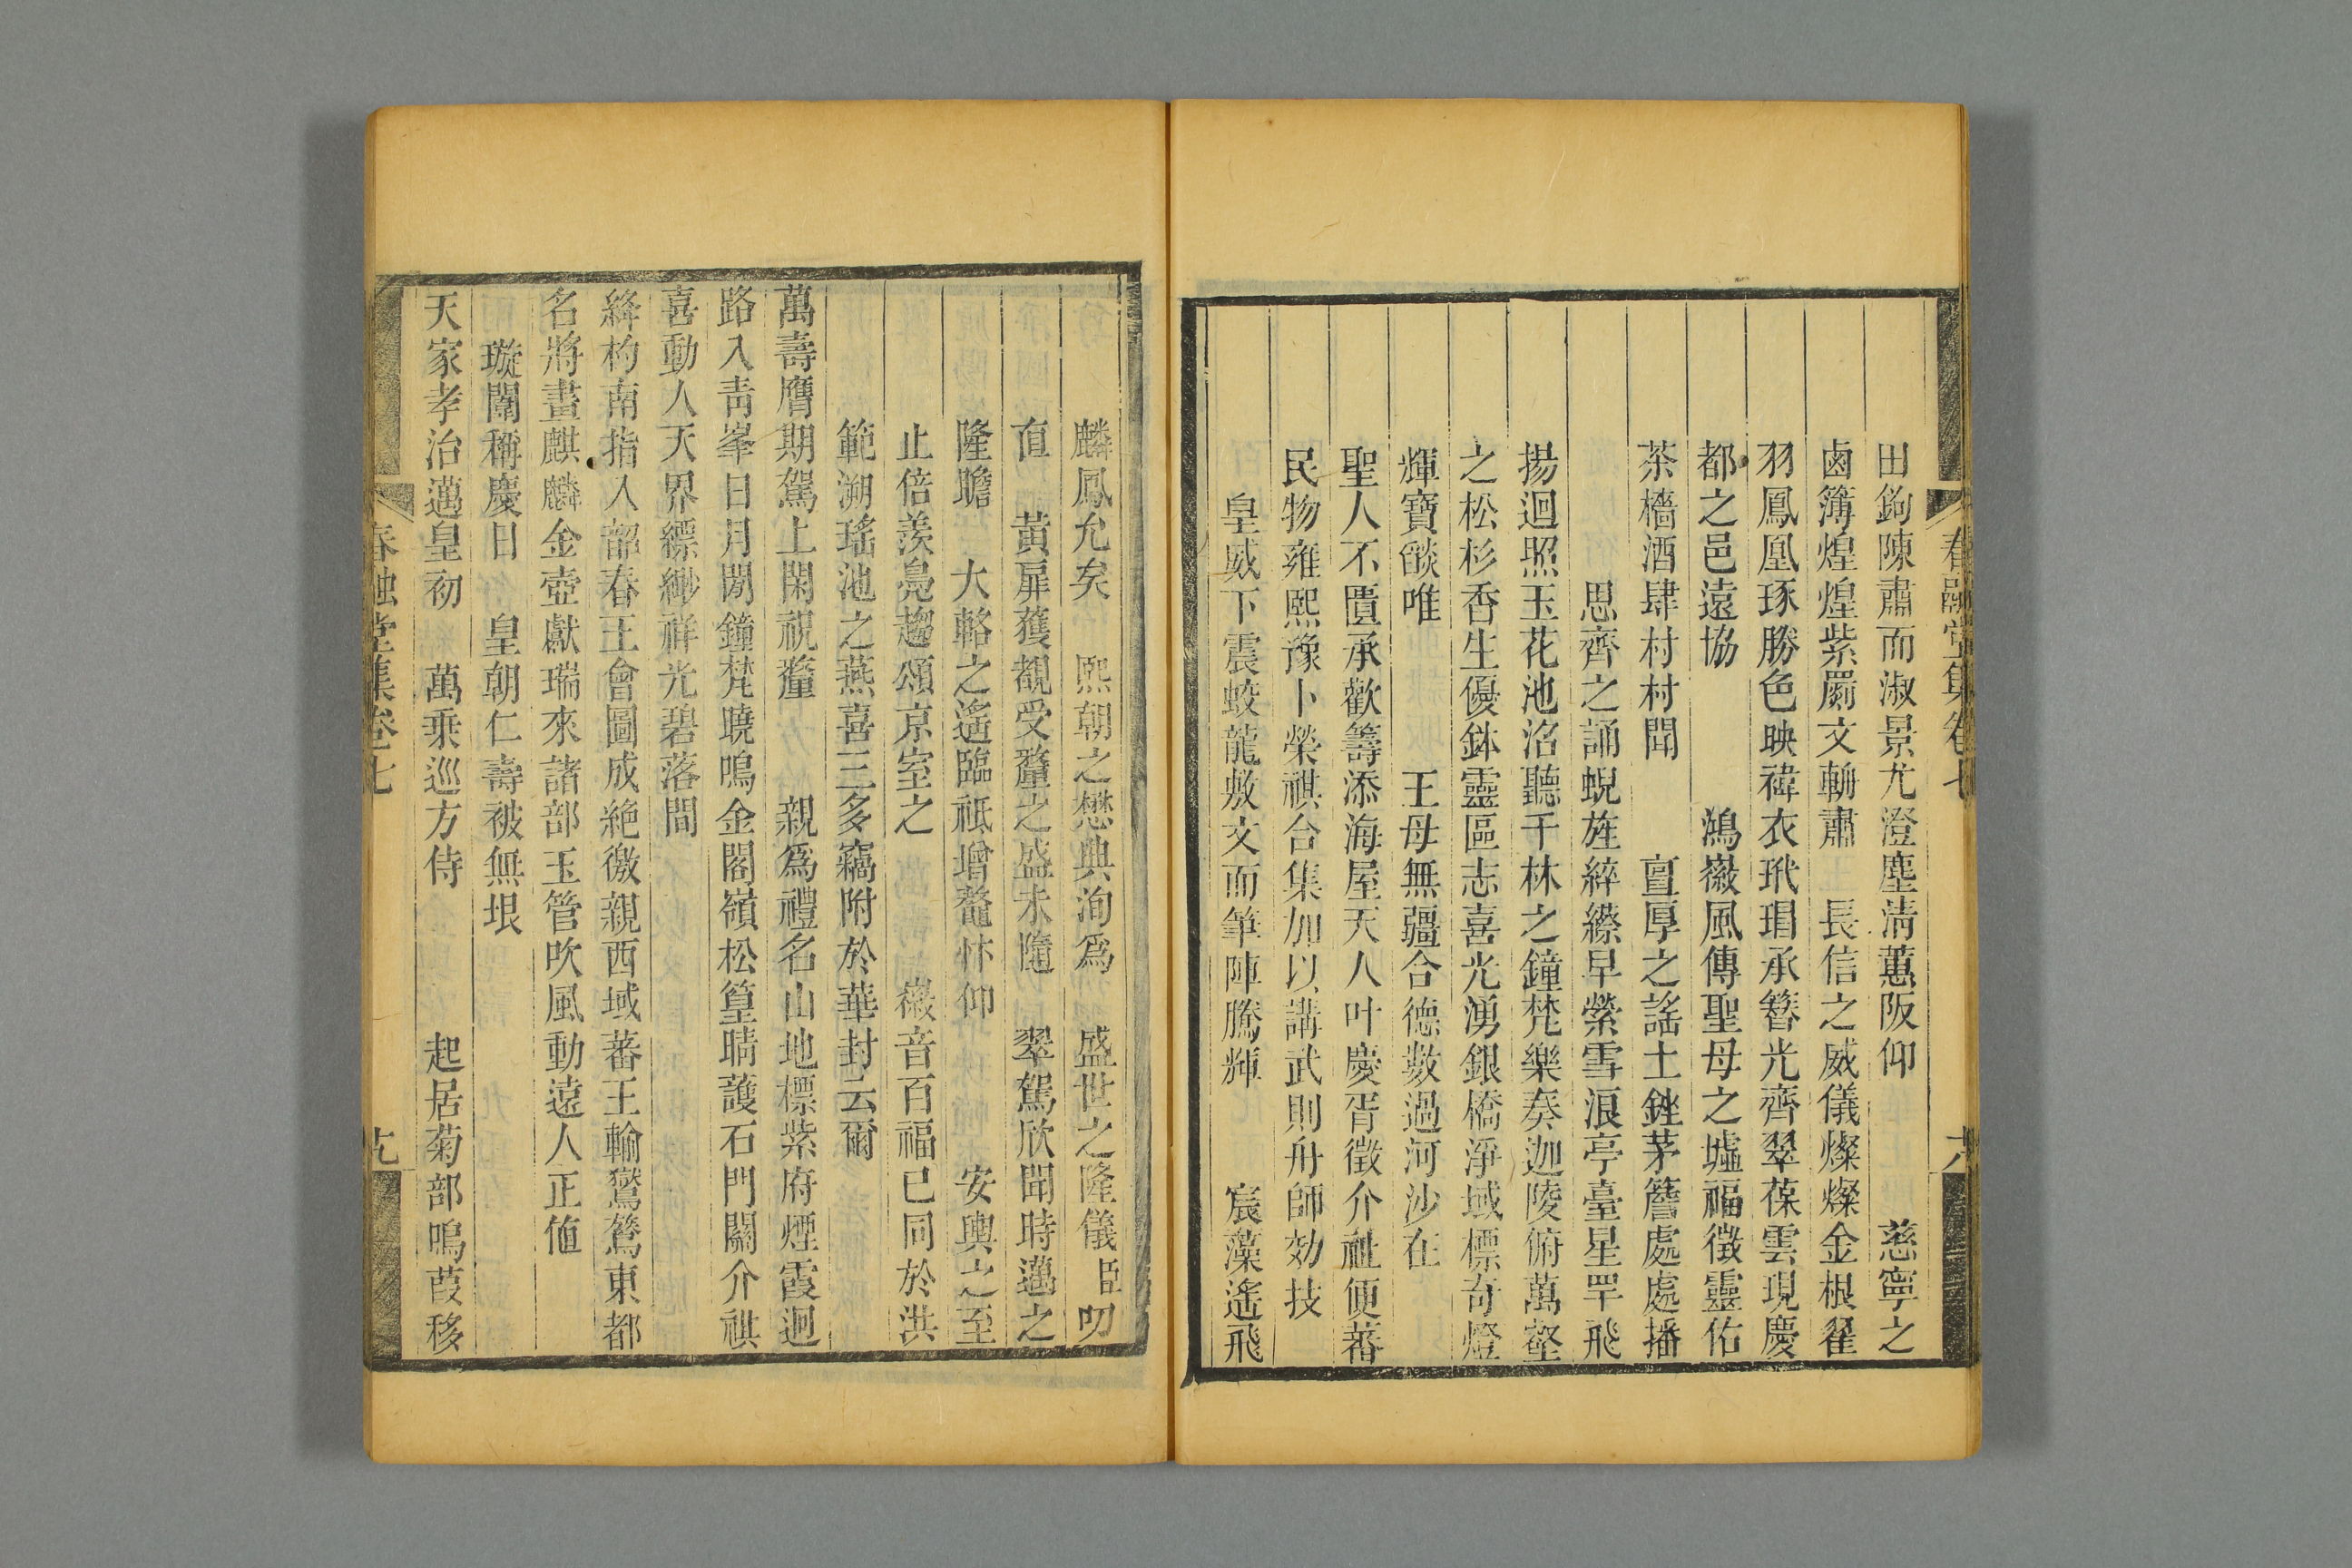 田鉤陳肅而淑景尤澄塵淸蕙阪仰　慈寧之
鹵簿煌煌紫罽文輈肅　長信之威儀燦燦金根翟
羽鳳凰琢勝色映褘衣玳瑁承簪光齊翠葆雲現慶
都之邑遠協　鴻徽風傳聖母之墟福徵靈佑
茶檣酒肆村村聞　亶厚之謠土銼茅簷處處播
思齊之誦蜺旌綷縩早縈雪浪亭臺星罕飛
揚迴照玉花池沼聽千林之鐘梵樂奏迦陵俯萬壑
之松杉香生優鉢靈區志喜光湧銀橋淨域標奇燈
輝寶燄唯　王母無疆合德數過河沙在
聖人不匱承歡籌添海屋天人叶慶胥徵介祉便蕃
民物雍熙豫卜榮祺台集加以講武則舟師効技
皇威下震蛟龍敷文而筆陣騰輝　宸藻遙飛
春融堂集卷七
麟鳳允矣　熙朝之懋典洵爲　盛世之隆儀臣叨
直　黃扉獲覩受釐之盛未隨　翠駕欣聞時邁之
隆瞻　大輅之遙臨祗增鼇忭仰　安輿之至
止倍羨鳧趨頌京室之　徽音百福已同於洪
範溯瑤池之燕喜三多竊附於華封云爾
萬壽膺期駕上閑祝釐　親爲禮名山地標紫府煙霞迥
路入靑峯日月閒鐘梵曉鳴金閣嶺松篁晴護石門關介祺
喜動人天界縹緲祥光碧落間
絳杓南指入韶春王會圖成絶徼親西域蕃王輸鵷鷟東都
名將畫麒麟金壺獻瑞來諸部玉管吹風動遠人正值
璇闈稱慶日　皇朝仁壽被無垠
天家孝治邁皇初　萬乘巡方侍　起居菊部鳴葭移
春融堂集卷七